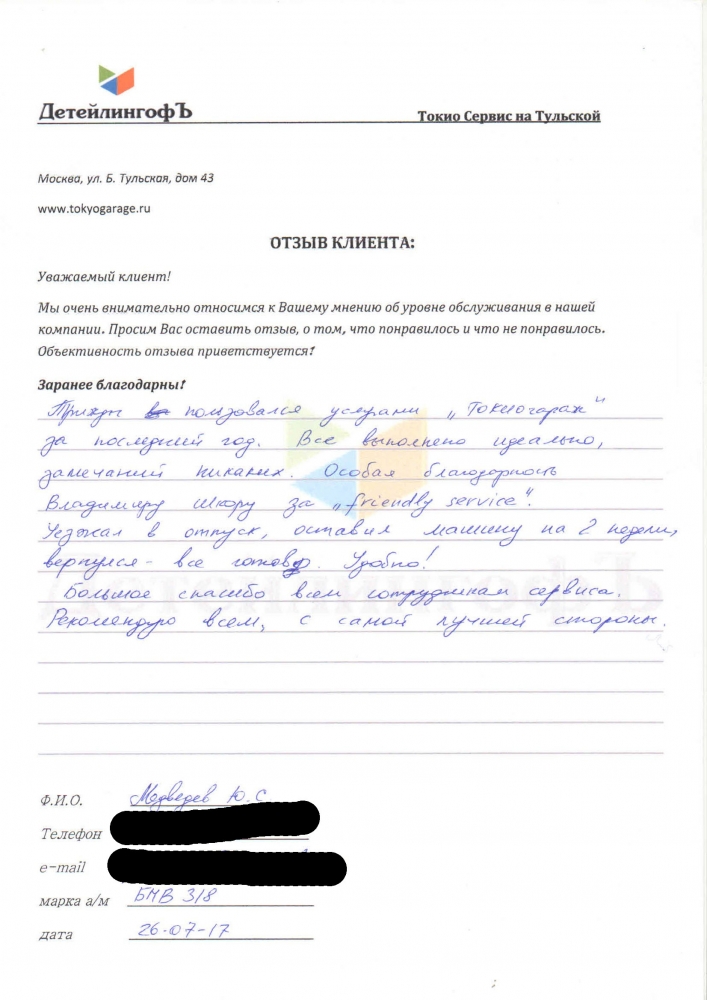 ДетейлингофЪ
Токио Сервис на Тульской
Москва, ул. Б. Тульская, дом 43
www.tokyogarage.ru
ОТЗЫВ КЛИЕНТА:
Уважаемый клиент!
Мы очень внимательно относимся к Вашему мнению об уровне обслуживания в нашей
компании. Просим Вас оставить отзыв, о том, что понравилось и что не понравилось.
Объективность отзыва приветствуется!
Заранее благодарны!
Трижды пользовался услугами „Токиогараж"
за последний год. Все выполнено идеально,
замечаний никаких. Особая благодарность
Владимиру Шкору за „friendly service".
Уезжал в отпуск, оставил машину на 2 недели,
вернулся - все готово. Удобно!
Большое спасибо всем сотрудникам сервиса.
Рекомендую всем, с самой лучшей стороны.
Ф.И.О. Медведев Ю.С
Телефон
e-mail
марка а/м БМВ 318
дата 26-07-17